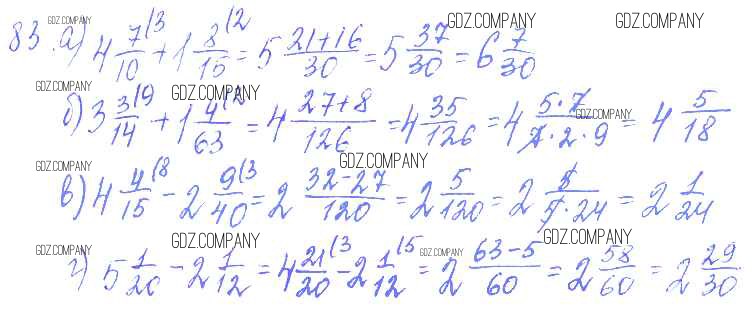 GDZ.COMPANY GDZ.COMPANY GDZ.COMPANY
83. а) 4 7/10 (3 + 1 8/15 (2 = 5 (21+16)/30 = 5 37/30 = 6 7/30
GDZ.COMPANY GDZ.COMPANY GDZ.COMPANY
б) 3 3/14 (9 + 1 4/63 (2 = 4 (27+8)/126 = 4 35/126 = 4 (5·7)/(7·2·9) = 4 5/18
GDZ.COMPANY GDZ.COMPANY
в) 4 4/15 (8 - 2 9/40 (3 = 2 (32-27)/120 = 2 5/120 = 2 5/(5·24) = 2 1/24
GDZ.COMPANY GDZ.COMPANY GDZ.COMPANY GDZ.COMPANY
г) 5 1/20 - 2 1/12 = 4 21/20 (3 - 2 1/12 (5 = 2 (63-5)/60 = 2 58/60 = 2 29/30